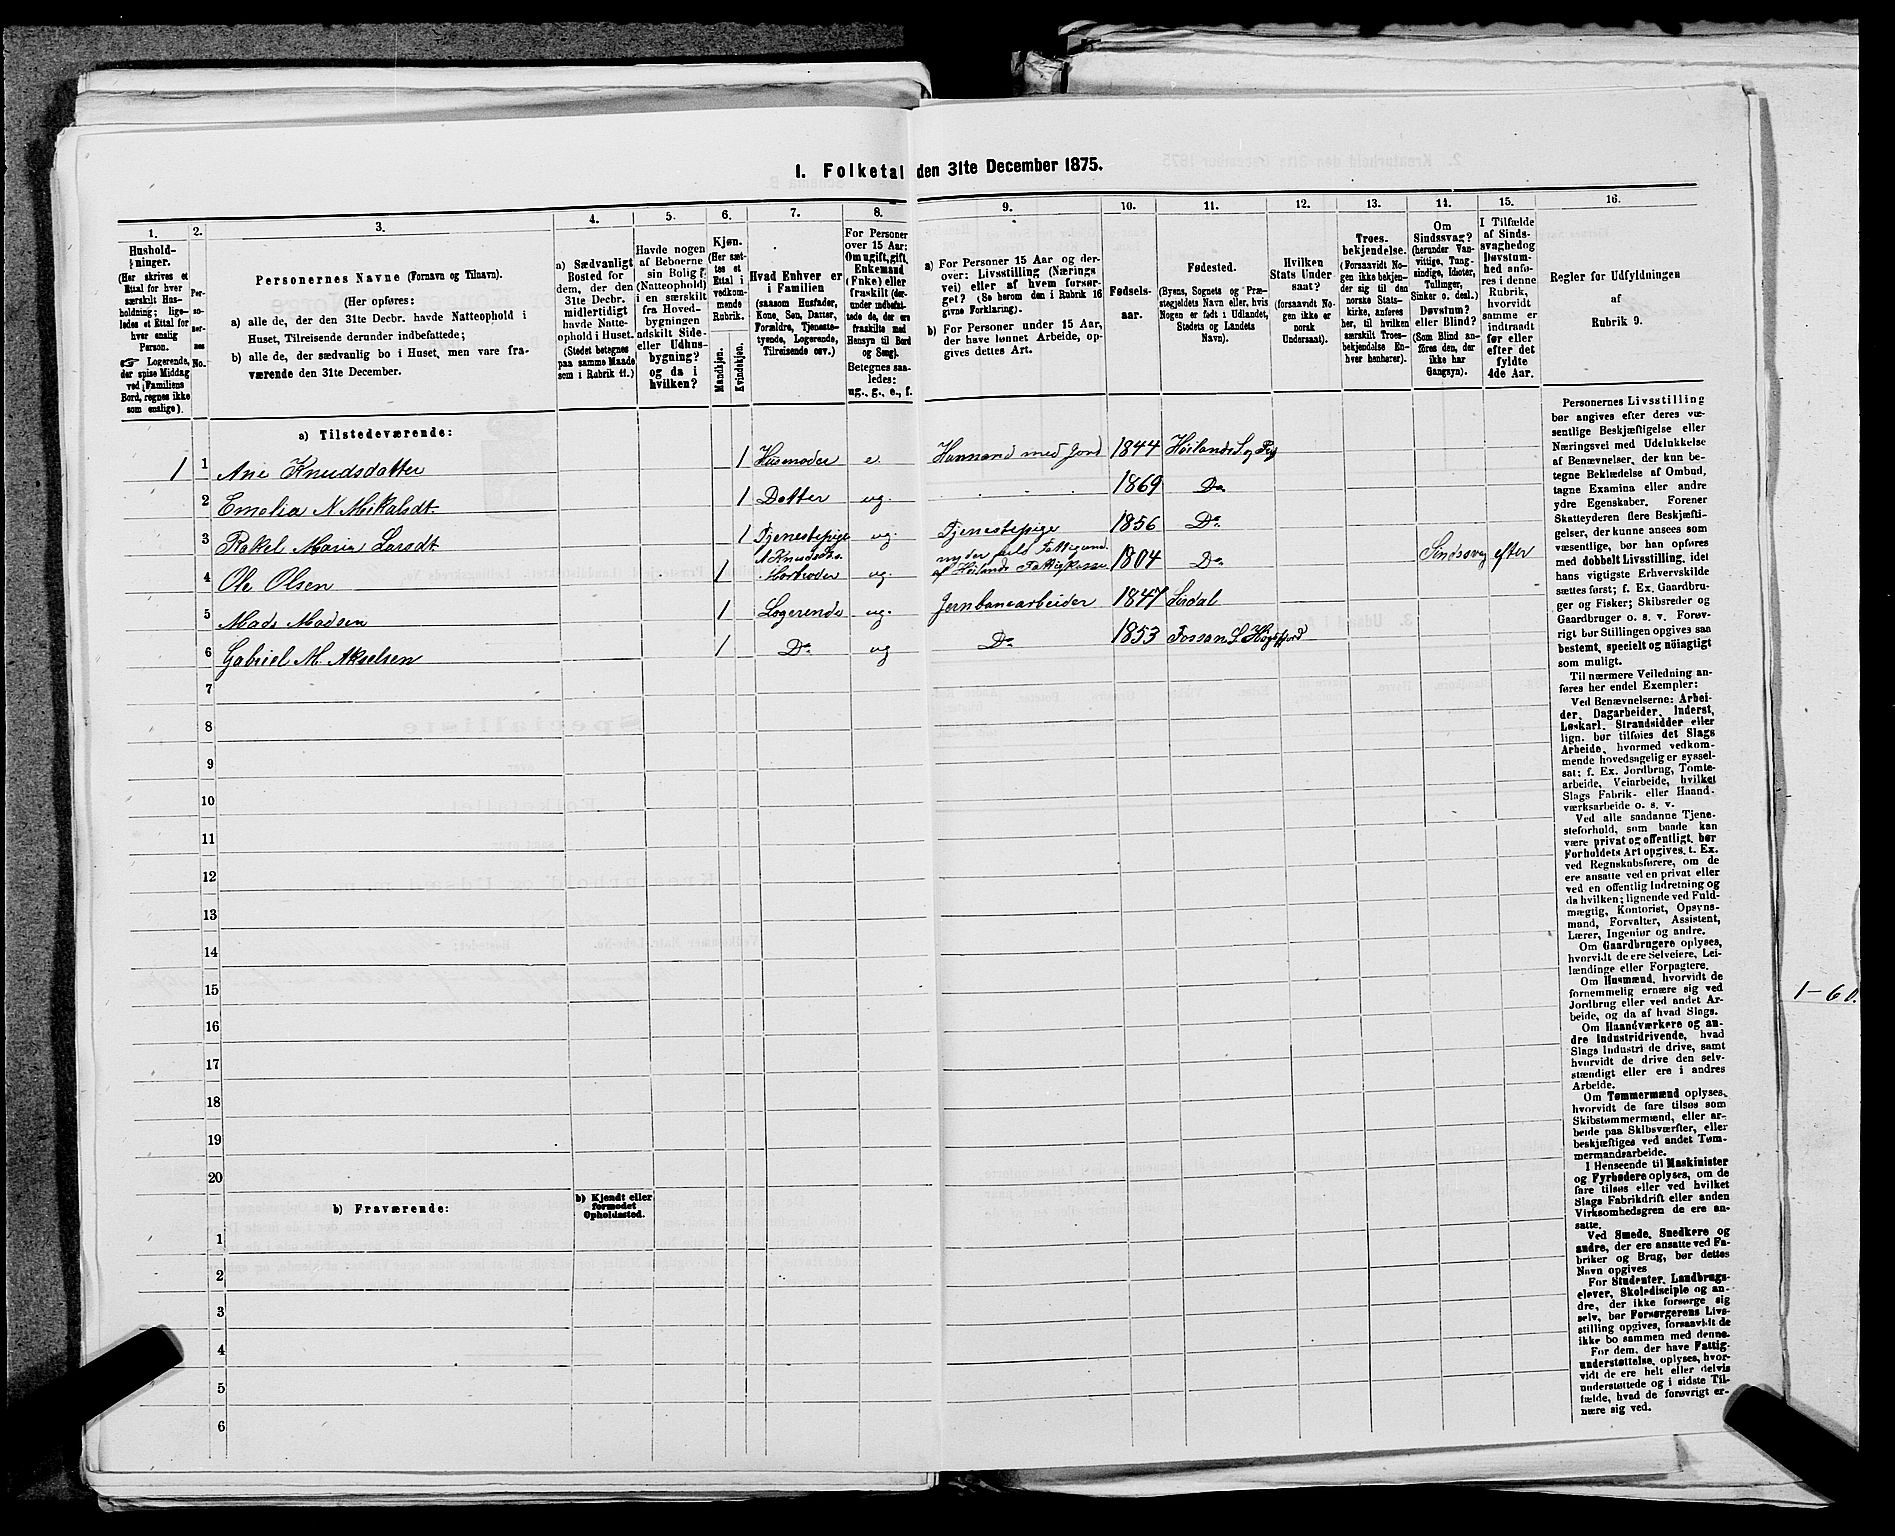 I. Folketal den 31te December 1875.
1. 2. 3. 4. 5. 6. 7. 8. 9. 10. 11. 12. 13. 14. 15. 16.
Hushold-
ninger.
(Her skrives et
Ettal for hver
særskilt Hus-
holdning; lige-
ledes et Ettal for
hver enslig
Person.
☞ Logerende,
der spise Middag
ved Familiens
Bord, regnes ikke
som enslige).
Per-
so-
ner-
nes
No.
Personernes Navne (Fornavn og Tilnavn).
(Her opføres:
a) alle de, der den 31te Decbr. havde Natteophold i
Huset, Tilreisende derunder indbefattede;
b) alle de, der sædvanlig bo i Huset, men vare fra-
værende den 31te December.
a) Sædvanligt
Bosted for
dem, der den
31te Decbr.
midlertidigt
havde Natte-
ophold i Huset.
(Stedet betegnes
paa samme Maade
som i Rubrik 11.)
Havde nogen
af Beboerne
sin Bolig
(Natteophold)
i en særskilt
fra Hoved-
bygningen
adskilt Side-
eller Udhus-
bygning?
og da i
hvilken?
Kjøn.
(Her sæt-
tes et
Ettal i
vedkom-
mende
Rubrik.
Mandkjøn.
Kvindekjøn.
Hvad Enhver er
i Familien
(saasom Husfader,
Kone, Søn, Datter,
Forældre, Tjeneste-
tyende, Logerende,
Tilreisende osv.)
For Personer
over 15 Aar:
Om ugift, gift,
Enkemand
(Enke) eller
fraskilt (der-
under indbefat-
tede de, der ere
fraskilte med
Hensyn til Bord
og Seng).
Betegnes saa-
ledes:
ug., g., e., f.
a) For Personer 15 Aar og der-
over: Livsstilling (Nærings
vei) eller af hvem forsør-
get? (Se herom den i Rubrik 16
givne Forklaring).
b) For Personer under 15 Aar,
der have lønnet Arbeide, op-
gives dettes Art.
Fødsels-
aar.
Fødested.
(Byens, Sognets og Præ-
stegjeldets Navn eller, hvis
Nogen er født i Udlandet,
Stedets og Landets
Navn).
Hvilken
Stats Under
saat?
(forsaavidt No-
gen ikke er
norsk
Undersaat).
Troes-
bekjendelse.
(Forsaavidt No-
gen ikke bekjen-
der sig til den
norske Stats-
kirke, anføres
her, til hvilken
særskilt Troes-
bekjendelse En-
hver henhører).
Om
Sindssvag?
(herunder Van-
vittige, Tung-
sindige, Idioter,
Tullinger,
Sinker o. desl.)
Døvstum?
eller Blind?
(Som Blind an-
føres den, der
ikke har
Gangsyn).
I Tilfælde
af Sinds-
svaghed og
Døvstum-
hed anfø-
res i denne
Rubrik,
hvorvidt
samme er
indtraadt
før eller
efter det
fyldte
4de Aar.
Regler for Udfyldningen
af
Rubrik 9.
a) Tilstedeværende:
1 1 Ane Knudsdatter 1 Husmoder e. Huusmand med Jord 1844 Höilands S og Pgj
2 Emelia N Mikalsdt 1 Datter ug. 1869 Do
3 Rakel Maria Larsdt 1 Tjenestepige ug. Tjenestepige 1856 Do
4 Ole Olsen 1 ug. af Höilands Fattigkasse 1804 Do Sindssvag efter
5 Mads Madsen 1 Logerende ug. Jernbanearbeider 1847 Sirdal
6 Gabriel M. Akselsen 1 Do ug Do 1853 Fossan S. Högsfjord
7
8
9
10
11
12
13
14
15
16
17
18
19
20
b) Fraværende:
b) Kjendt eller
formodet
Opholdssted.
1
2
3
4
5
6
Personernes Livsstilling
bør angives efter deres væ-
sentlige Beskjæftigelse eller
Næringsvei med Udelukkelse
af Benævnelser, der kun be-
tegne Beklædelse af Ombud,
tagne Examina eller andre
ydre Egenskaber. Forener
Skatteyderen flere Beskjæfti-
gelser, der kunne ansees som
væsentlige, bør han opføres
med dobbelt Livsstilling, idet
hans vigtigste Erhvervskilde
sættes først; f. Ex. Gaardbru-
ger og Fisker; Skibsreder og
Gaardbruger o. s. v. Forøv-
rigt bør Stillingen opgives saa
bestemt, specielt og nöiagtigt
som muligt.
Til nærmere Veiledning an-
føres her endel Exempler:
Ved Benævnelserne: Arbei-
der, Dagarbeider, Inderst,
Løskarl, Strandsidder eller
lign. bør tilføies det Slags
Arbeide, hvormed vedkom-
mende hovedsagelig er syssel-
sat; f. Ex. Jordbrug, Tomte-
arbeide, Veiarbeide, hvilket
Slags Fabrik- eller Haand-
værksarbeide o. s. v.
Ved alle saadanne Tjene-
steforhold, som baade kan
være privat og offentligt, bør
Forholdets Art opgives, t. Ex.
ved Regnskabsførere, om de
ere ansatte ved en privat eller
ved en offentlig Indretning og
da hvilken; lignende ved Fuld-
mægtig, Kontorist, Opsyns-
mand, Forvalter, Assistent,
Lærer, Ingeniør og andre.
Om Gaardbrugere oplyses,
hvorvidt de ere Selveiere, Lei-
lændinge eller Forpagtere.
Om Husmænd, hvorvidt de
fornemmelig ernære sig ved
Jordbrug eller ved andet Ar-
beide, og da af hvad Slags.
Om Haandværkere og an-
dre Industridrivende, hvad
Slags Industri de drive, samt
hvorvidt de drive den selv-
stændigt eller ere i andres
Arbeide.
Om Tømmermænd oplyses,
hvorvidt de fare tilsøs som
Skibstømmermænd, eller ar-
beide paa Skibsværfter, eller
beskjæftiges ved andet Tøm-
mermandsarbeide.
I Henseende til Maskinister
og Fyrbødere oplyses, om de
fare tilsøs eller ved hvilket
Slags Fabrikdrift eller anden
Virksomhedsgren de ere an-
satte.
Ved Smede, Snedkere og
andre, der ere ansatte ved Fa-
briker og Brug, bør dettes
Navn opgives
For Studenter, Landbrugs-
elever, Skoledisciple og an-
dre, der ikke forsørge sig
selv, bør Forsørgerens Livs-
stilling opgives, forsaavidt de
ikke bo sammen med denne.
For dem, der have Fattig-
understøttelse, oplyses, hvor-
vidt de ere helt eller delvis
understøttede og i sidste Til-
fælde, hvad de forøvrigt er-
nære sig ved.
1-60.